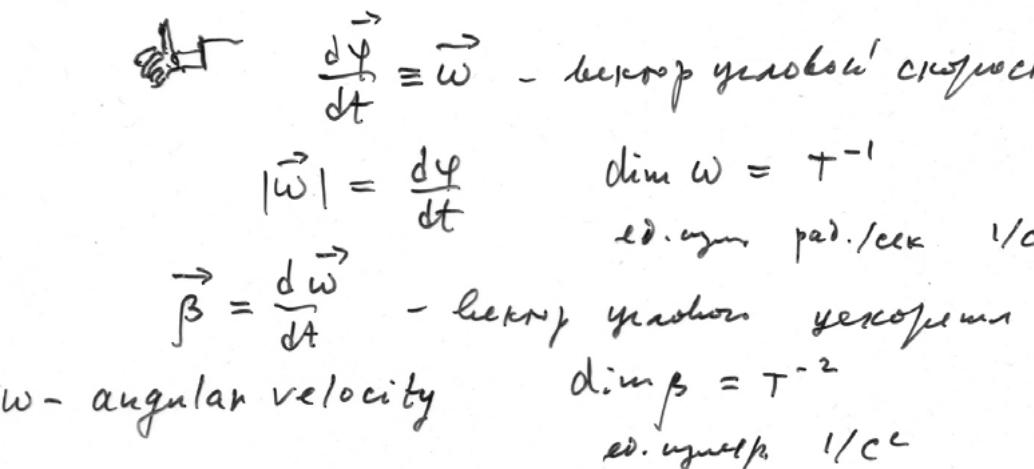 dφ⃗/dt ≡ ω⃗ - вектор угловой скорос
|ω⃗| = dφ/dt dim ω = T⁻¹
ед. изм рад./сек 1/с
β⃗ = dω⃗/dt - вектор углового ускорения
ω - angular velocity dim β = T⁻²
ед. измер. 1/с²